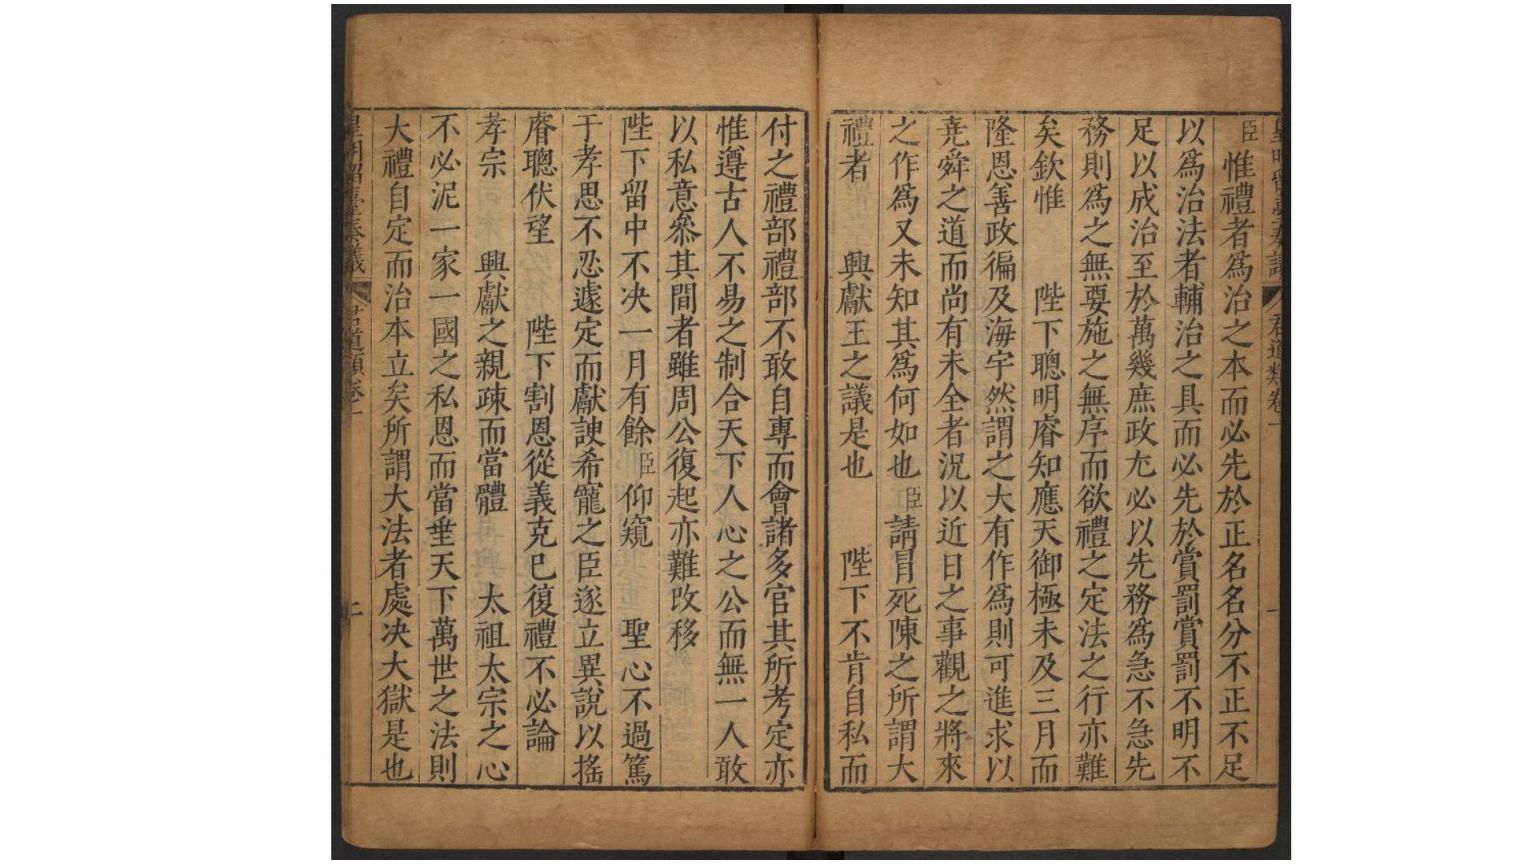 臣惟禮者爲治之本而必先於正名名分不正不足
以爲治法者輔治之具而必先於賞罰賞罰不明不
足以成治至於萬幾庶政尤必以先務爲急不急先
務則爲之無要施之無序而欲禮之定法之行亦難
矣欽惟 陛下聰明睿知應天御極未及三月而
隆恩善政徧及海宇然謂之大有作爲則可進求以
堯舜之道而尚有未全者況以近日之事觀之將來
之作爲又未知其爲何如也臣請冒死陳之所謂大
禮者 興獻王之議是也 陛下不肯自私而
付之禮部禮部不敢自專而會諸多官其所考定亦
惟遵古人不易之制合天下人心之公而無一人敢
以私意叅其間者雖周公復起亦難改移
陛下留中不决一月有餘臣仰窺 聖心不過篤
于孝思不忍遽定而獻諛希寵之臣遂立異說以搖
睿聰伏望 陛下割恩從義克己復禮不必論
孝宗 興獻之親疎而當體 太祖太宗之心
不必泥一家一國之私恩而當垂天下萬世之法則
大禮自定而治本立矣所謂大法者處决大獄是也